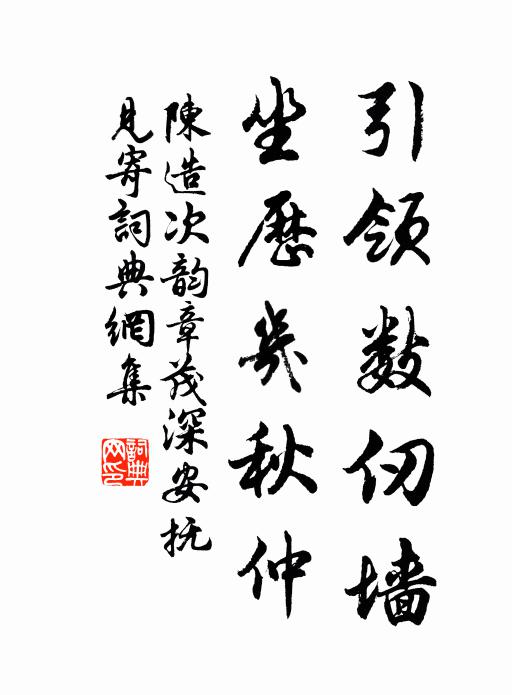 引领数仞墙
坐歷幾秋仲
陳造次韵章茂深安抚
見寄詞典網集
詞典
网印